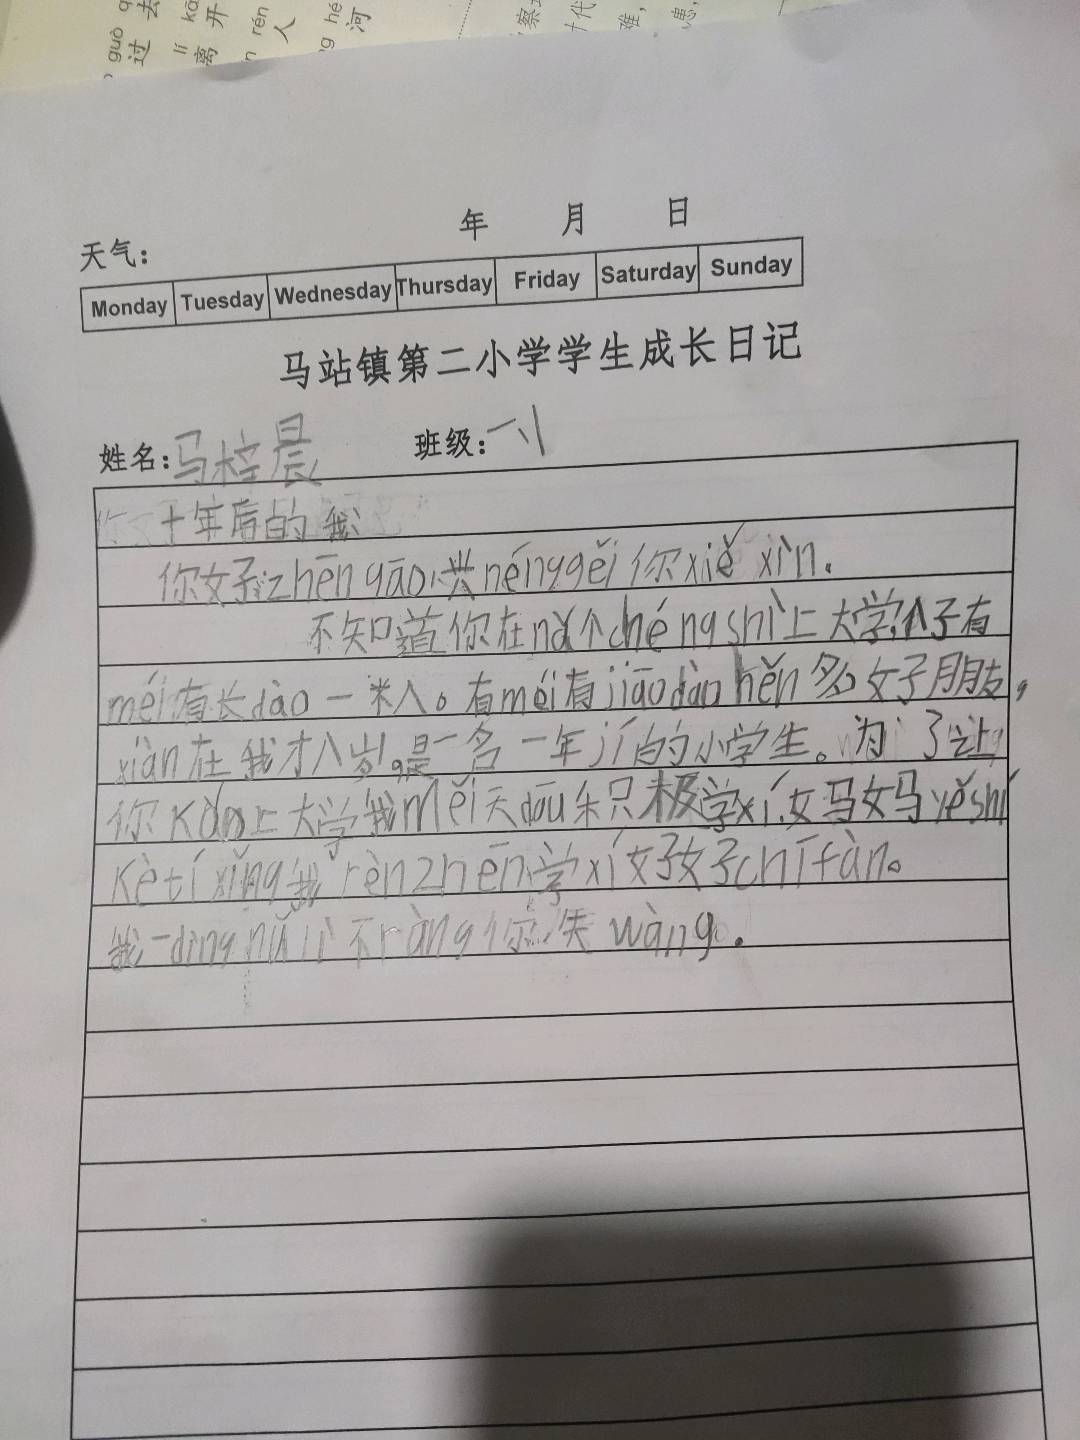 guò
过
去
lí kā
离 开
rén
人
hé
河
察
代
难，
患，
年 月 日
天气：
Monday Tuesday Wednesday Thursday Friday Saturday Sunday
马站镇第二小学学生成长日记
姓名：马梓晨 班级：一、1
十年后的我
你好zhēn gāo兴néng gěi你xiě xìn.
不知道你在nǎ个chéng shì上大学，个子有
méi有长dào一米八。有méi有jiāo dào hěn多好朋友，
xiàn在我才八岁，是一名一年jí的小学生。为了让
你kǎo上大学我měi天dōu积极学xí，妈妈yě shí
kè tí xǐng我rèn zhēn学xí好好chī fàn。
我一dìng nǔ lì不ràng你失wàng.